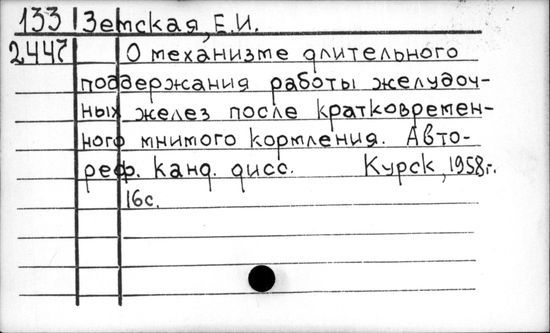 133 Зетская, Е.И.
2447 О механизме длительного
поддержания работы желудоч-
ных желез после кратковремен-
ного мнимого кормления. Авто-
реф. канд. дисс. Курск, 1958г.
16с.